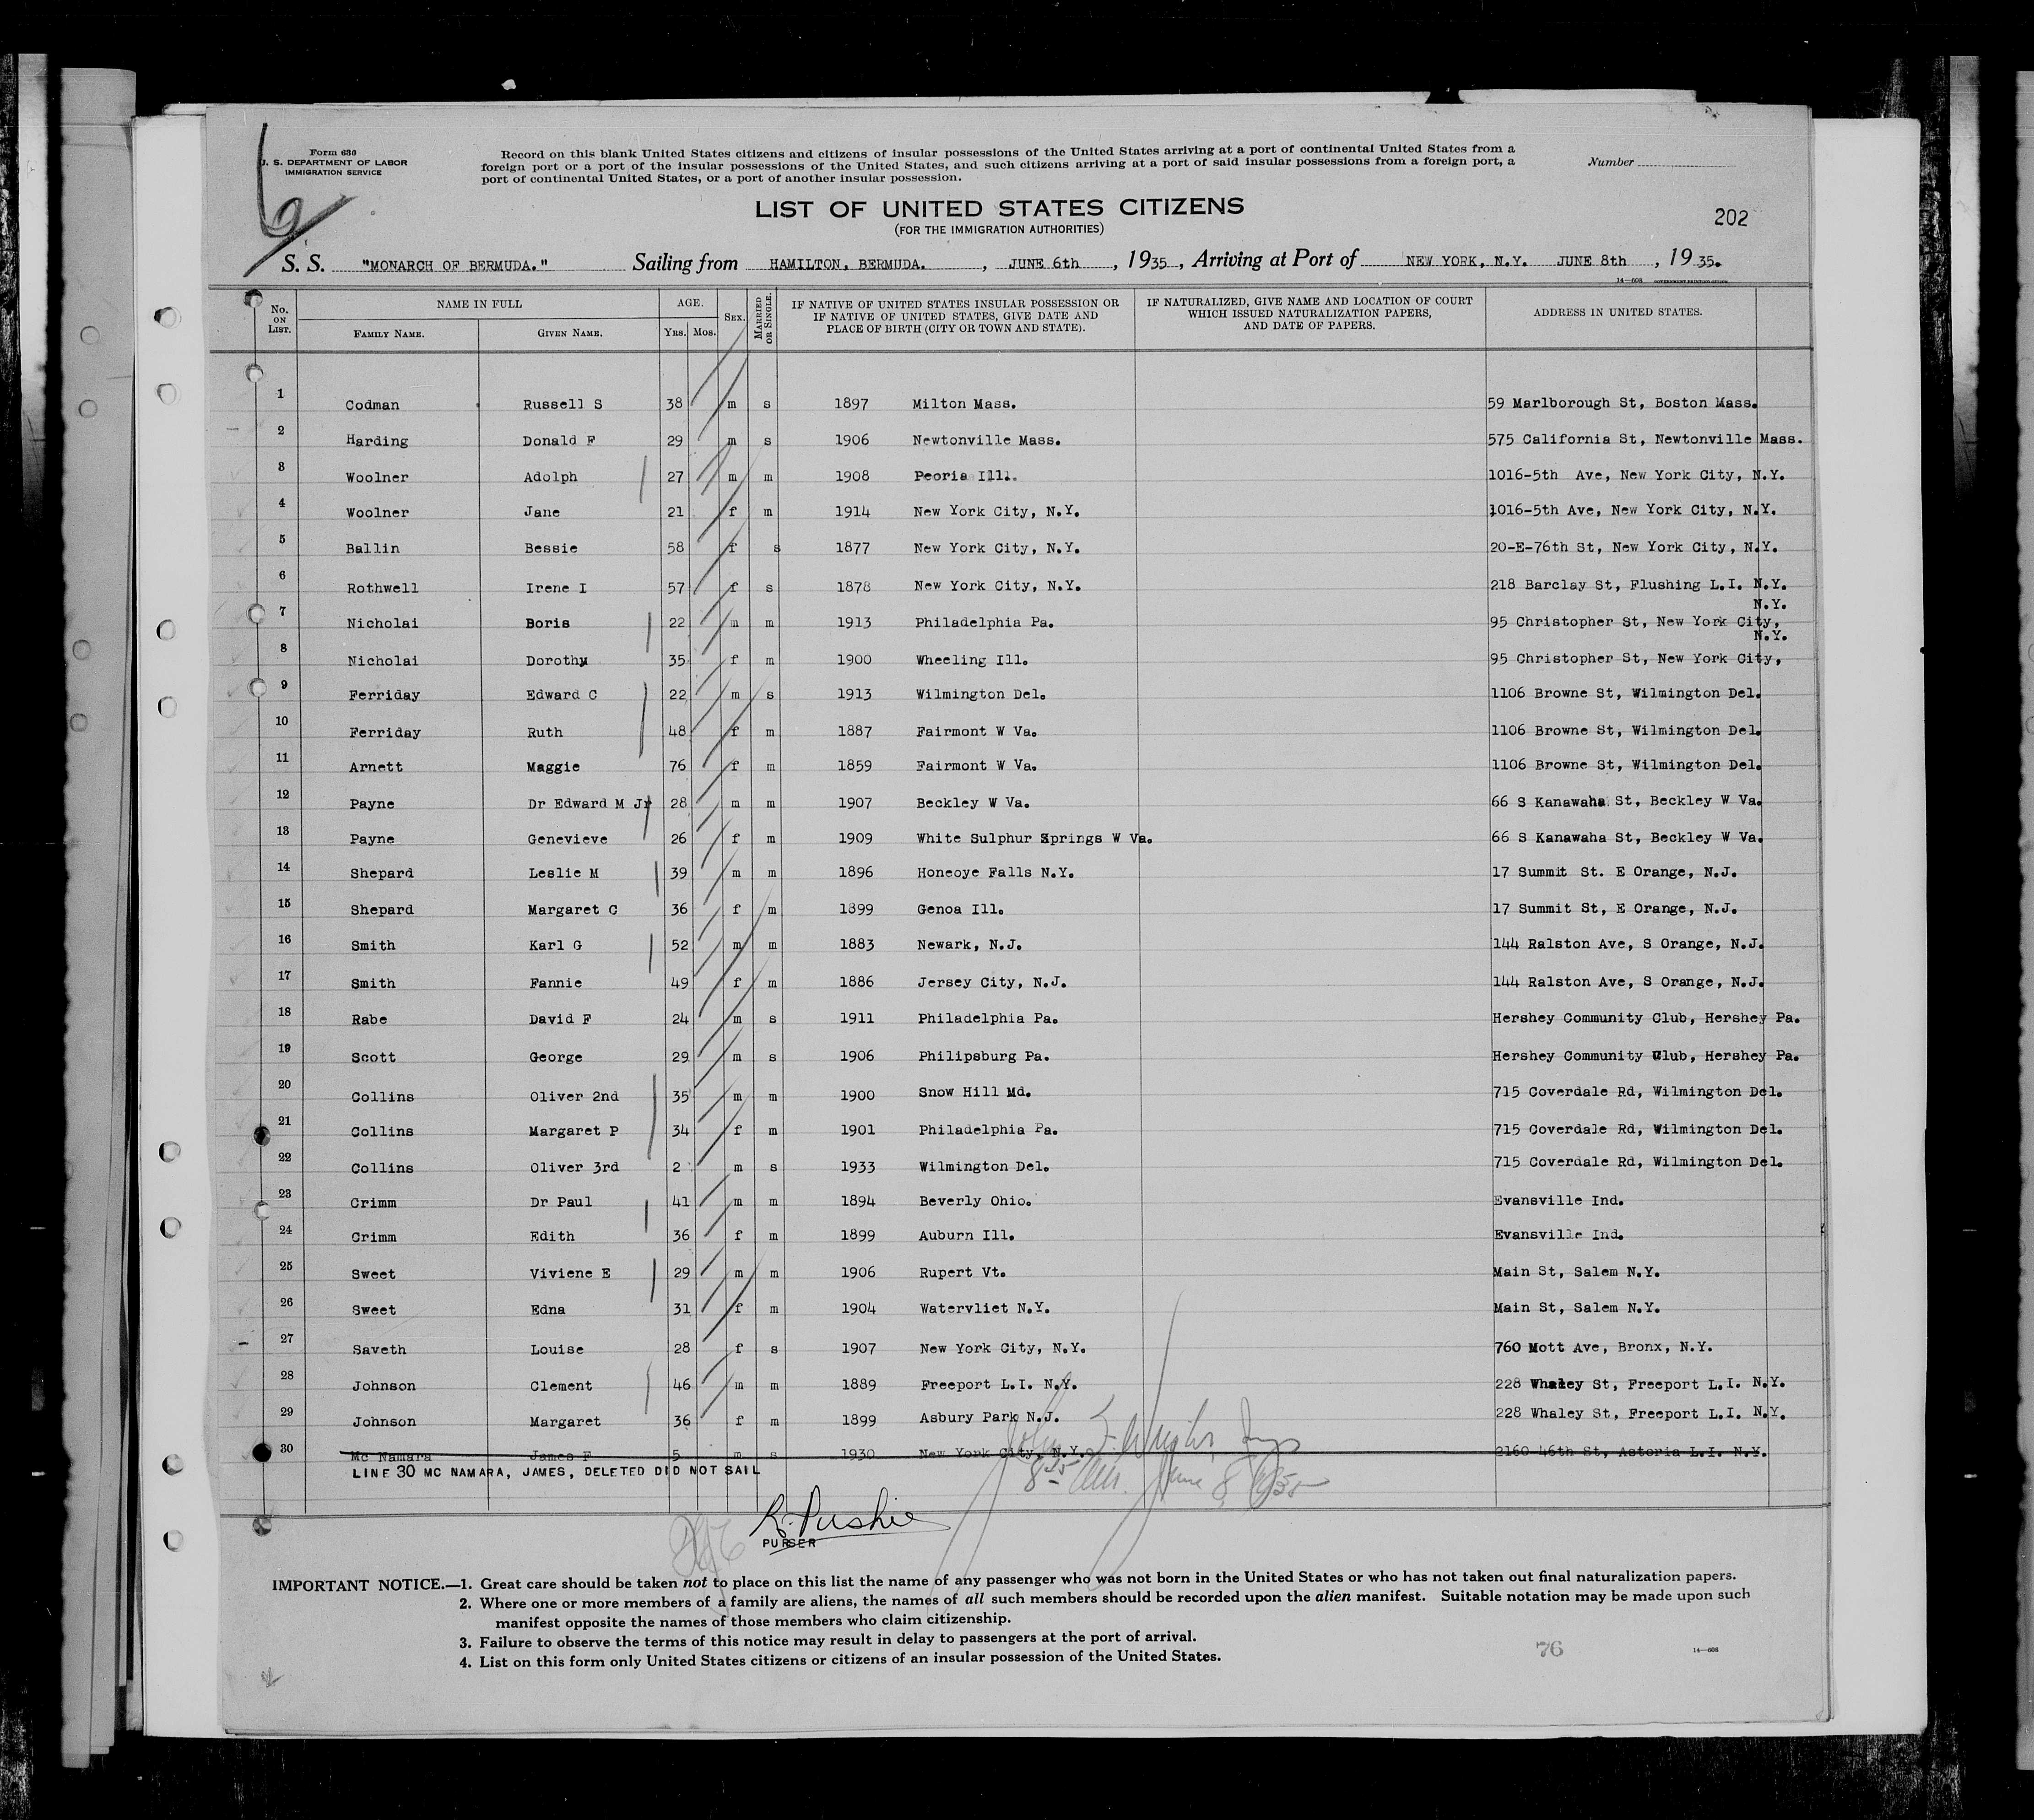 Form 630
U. S. DEPARTMENT OF LABOR
IMMIGRATION SERVICE
Record on this blank United States citizens and citizens of insular possessions of the United States arriving at a port of continental United States from a
foreign port or a port of the insular possessions of the United States, and such citizens arriving at a port of said insular possessions from a foreign port, a
port of continental United States, or a port of another insular possession.
Number
LIST OF UNITED STATES CITIZENS
(FOR THE IMMIGRATION AUTHORITIES)
202
S. S. "MONARCH OF BERMUDA." Sailing from HAMILTON, BERMUDA. , JUNE 6th , 1935 , Arriving at Port of NEW YORK, N.Y. JUNE 8th , 1935.
14—608 GOVERNMENT PRINTING OFFICE
No. ON LIST. NAME IN FULL FAMILY NAME. GIVEN NAME. AGE. YRS. MOS. SEX. MARRIED OR SINGLE. IF NATIVE OF UNITED STATES INSULAR POSSESSION OR IF NATIVE OF UNITED STATES, GIVE DATE AND PLACE OF BIRTH (CITY OR TOWN AND STATE). IF NATURALIZED, GIVE NAME AND LOCATION OF COURT WHICH ISSUED NATURALIZATION PAPERS, AND DATE OF PAPERS. ADDRESS IN UNITED STATES.
1 Codman Russell S 38 m s 1897 Milton Mass. 59 Marlborough St, Boston Mass.
2 Harding Donald F 29 m s 1906 Newtonville Mass. 575 California St, Newtonville Mass.
3 Woolner Adolph 27 m m 1908 Peoria Ill. 1016-5th Ave, New York City, N.Y.
4 Woolner Jane 21 f m 1914 New York City, N.Y. 1016-5th Ave, New York City, N.Y.
5 Ballin Bessie 58 f s 1877 New York City, N.Y. 20-E-76th St, New York City, N.Y.
6 Rothwell Irene I 57 f s 1878 New York City, N.Y. 218 Barclay St, Flushing L.I. N.Y.
7 Nicholai Boris 22 m m 1913 Philadelphia Pa. 95 Christopher St, New York City, N.Y.
8 Nicholai Dorothy 35 f m 1900 Wheeling Ill. 95 Christopher St, New York City, N.Y.
9 Ferriday Edward C 22 m s 1913 Wilmington Del. 1106 Browne St, Wilmington Del.
10 Ferriday Ruth 48 f m 1887 Fairmont W Va. 1106 Browne St, Wilmington Del.
11 Arnett Maggie 76 f m 1859 Fairmont W Va. 1106 Browne St, Wilmington Del.
12 Payne Dr Edward M Jr 28 m m 1907 Beckley W Va. 66 S Kanawaha St, Beckley W Va.
13 Payne Genevieve 26 f m 1909 White Sulphur Springs W Va. 66 S Kanawaha St, Beckley W Va.
14 Shepard Leslie M 39 m m 1896 Honeoye Falls N.Y. 17 Summit St. E Orange, N.J.
15 Shepard Margaret C 36 f m 1899 Genoa Ill. 17 Summit St, E Orange, N.J.
16 Smith Karl G 52 m m 1883 Newark, N.J. 144 Ralston Ave, S Orange, N.J.
17 Smith Fannie 49 f m 1886 Jersey City, N.J. 144 Ralston Ave, S Orange, N.J.
18 Rabe David F 24 m s 1911 Philadelphia Pa. Hershey Community Club, Hershey Pa.
19 Scott George 29 m s 1906 Philipsburg Pa. Hershey Community Club, Hershey Pa.
20 Collins Oliver 2nd 35 m m 1900 Snow Hill Md. 715 Coverdale Rd, Wilmington Del.
21 Collins Margaret P 34 f m 1901 Philadelphia Pa. 715 Coverdale Rd, Wilmington Del.
22 Collins Oliver 3rd 2 m s 1933 Wilmington Del. 715 Coverdale Rd, Wilmington Del.
23 Crimm Dr Paul 41 m m 1894 Beverly Ohio. Evansville Ind.
24 Crimm Edith 36 f m 1899 Auburn Ill. Evansville Ind.
25 Sweet Viviene E 29 m m 1906 Rupert Vt. Main St, Salem N.Y.
26 Sweet Edna 31 f m 1904 Watervliet N.Y. Main St, Salem N.Y.
27 Saveth Louise 28 f s 1907 New York City, N.Y. 760 Mott Ave, Bronx, N.Y.
28 Johnson Clement 46 m m 1889 Freeport L.I. N.Y. 228 Whaley St, Freeport L.I. N.Y.
29 Johnson Margaret 36 f m 1899 Asbury Park N.J. 228 Whaley St, Freeport L.I. N.Y.
30 Mc Namara James F 5 m s 1930 New York City, N.Y. 2160 46th St, Astoria L.I. N.Y.
LINE 30 MC NAMARA, JAMES, DELETED DID NOT SAIL
June 8, 1935
R. Pushie
PURSER
IMPORTANT NOTICE.—1. Great care should be taken not to place on this list the name of any passenger who was not born in the United States or who has not taken out final naturalization papers.
2. Where one or more members of a family are aliens, the names of all such members should be recorded upon the alien manifest. Suitable notation may be made upon such
manifest opposite the names of those members who claim citizenship.
3. Failure to observe the terms of this notice may result in delay to passengers at the port of arrival.
4. List on this form only United States citizens or citizens of an insular possession of the United States.
76
14—608